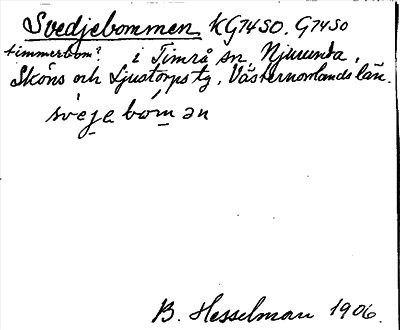 Svedjebommen KG74SO. G74SO
timmerbom? i Timrå sn, Njurunda,
Sköns och Ljustorps tg, Västernorrlands län.
svejebomən
B. Hesselman 1906.